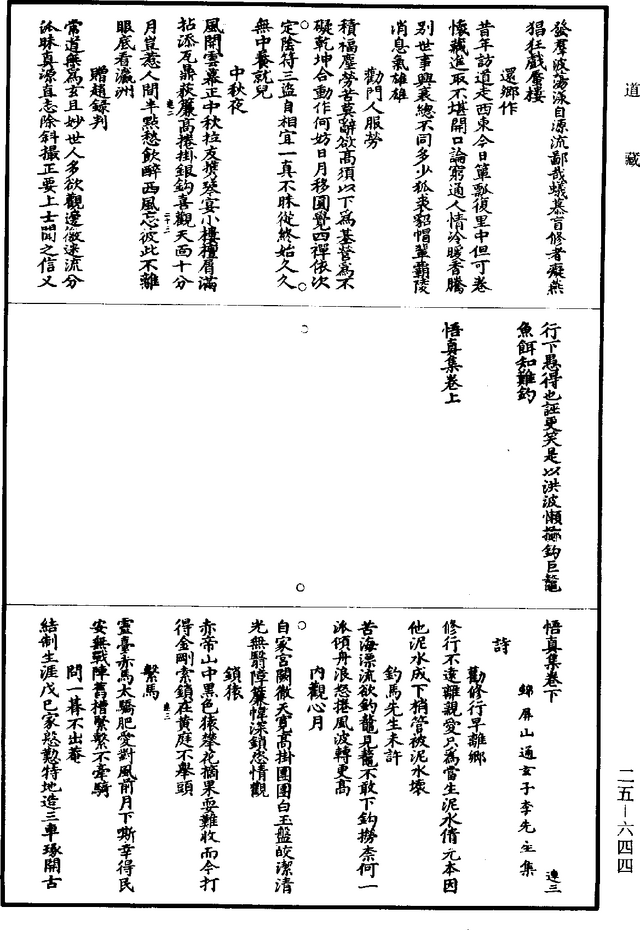 道藏
發摩波蕩漾自源流鄙哉蟻慕盲修者癡燕
猖狂戲蜃樓
還鄉作
昔年訪道走西東今日簞瓢復里中但可卷
懷藏進取不堪開口論窮通人情冷暖香騰
別世事興衰總不同多少狐裘貂帽輩霸陵
消息氣雄雄
勸門人服勞
積福塵勞苦莫辭欲高須以下為基營為不
礙乾坤合動作何妨日月移圓覺四禪依次
定陰符三盜自相宜一真不昧從終始久久
無中養就兒
中秋夜
風開雲幕正中秋拉友携琴宴小樓檀屑滿
拈添瓦鼎荻簾高捲掛銀鈎喜觀天面十分
月豈惹人間半點愁飲醉西風忘彼此不離
眼底看瀛洲
贈趙錄判
常道無為玄且妙世人多欲觀邊徼迷流分
派昧真源直志除斜撮正要上士聞之信又
行下愚得也誣更笑是以洪波懶擲鈎巨鼇
魚餌知難釣
悟真集卷上
悟真集卷下
鄉屏山通玄子李先生集
詩
勸修行早離鄉
修行不遠離親愛只為當生泥水債元本因
他泥水成下梢管被泥水壞
釣馬先生未許
苦海漂流欲釣龍見龍不敢下鈎撈柰何一
派傾舟浪怒捲風波轉更高
內觀心月
自家宮闕徹天寬高掛團團白玉盤皎潔清
光無翳障簾幃深鎖恣情觀
鎖猿
赤帝山中黑色猿攀花摘果耍難收而今打
得金剛索鎖在黄庭不舉頭
繫馬
靈臺赤馬太驕肥愛對風前月下嘶幸得民
安無戰陣舊槽緊繫不牽騎
問一暮不出菴
結制生涯戊巳家慇懃特地造三車琢開古
二五—六四四